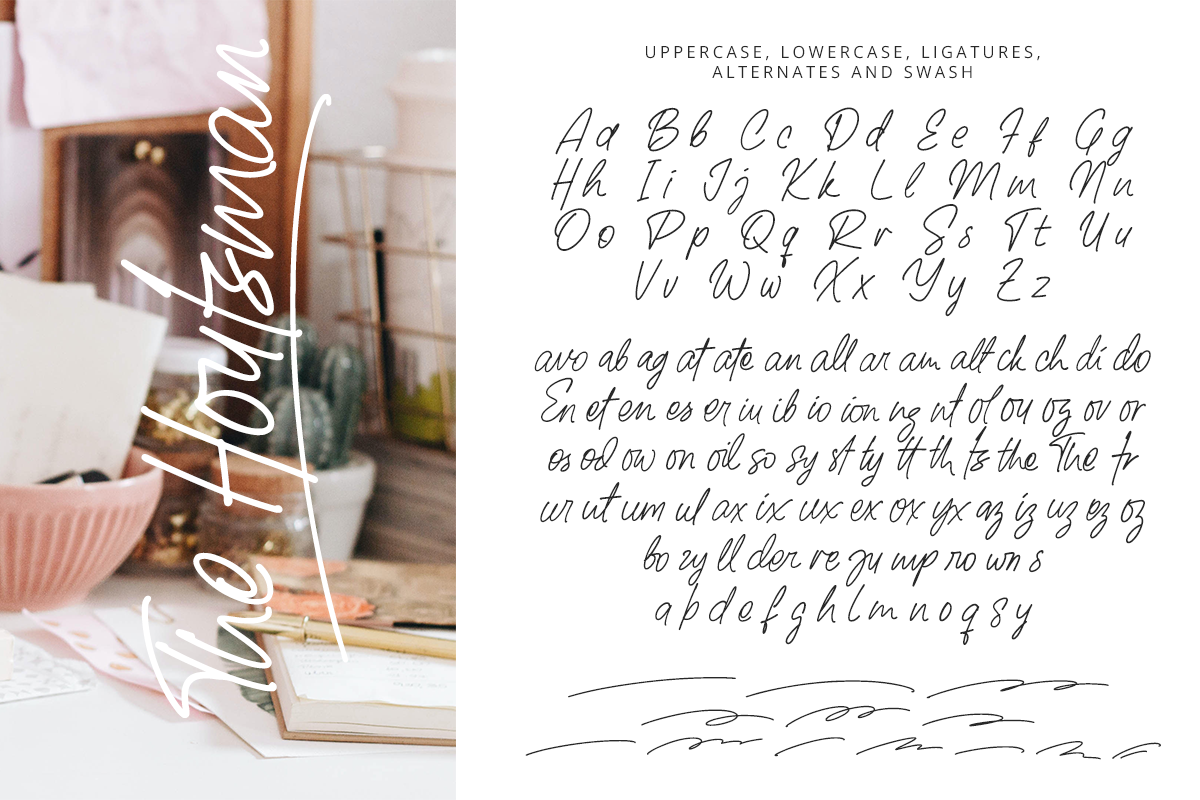 The Houtsman
UPPERCASE, LOWERCASE, LIGATURES,
ALTERNATES AND SWASH
Aa Bb Cc Dd Ee Ff Gg
Hh Ii Jj Kk Ll Mm Nn
Oo Pp Qq Rr Ss Tt Uu
Vv Ww Xx Yy Zz
avo ab ag at ate an all ar am alt ck ch di do
En et en es er iu ib io ion ng nt ol ou oz ov or
os od ow on oil so sy st ty tt th ts the The tr
ur ut um ul ax ix ux ex ox yx az iz uz ez oz
bo zy ll der re zu mp ro wn s
a b d e f g h l m n o q s y